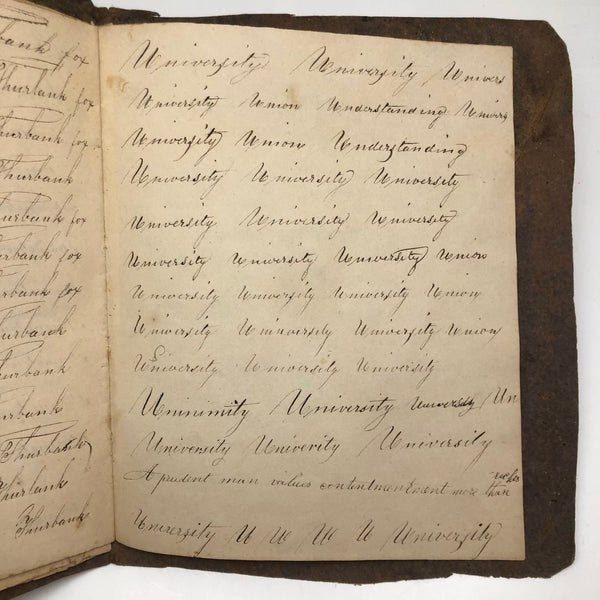 urbank fox
Thurbank fox
Thurbank fox
Thurbank
Thurbank fox
Thurbank fox
Thurbank fox
Thurbank
Thurbank
Thurbank
Thurbank
Thurbank
Thurbank
Thurbank
University University Univers
University Union Understanding Univers
University Union Understanding
University University University
University University University
University University University Union
University University University Union
University University University Union
University University University
Unimimity University University Un
University Univerity University
A prudent man values contentmentment more than riches
University U U U U University